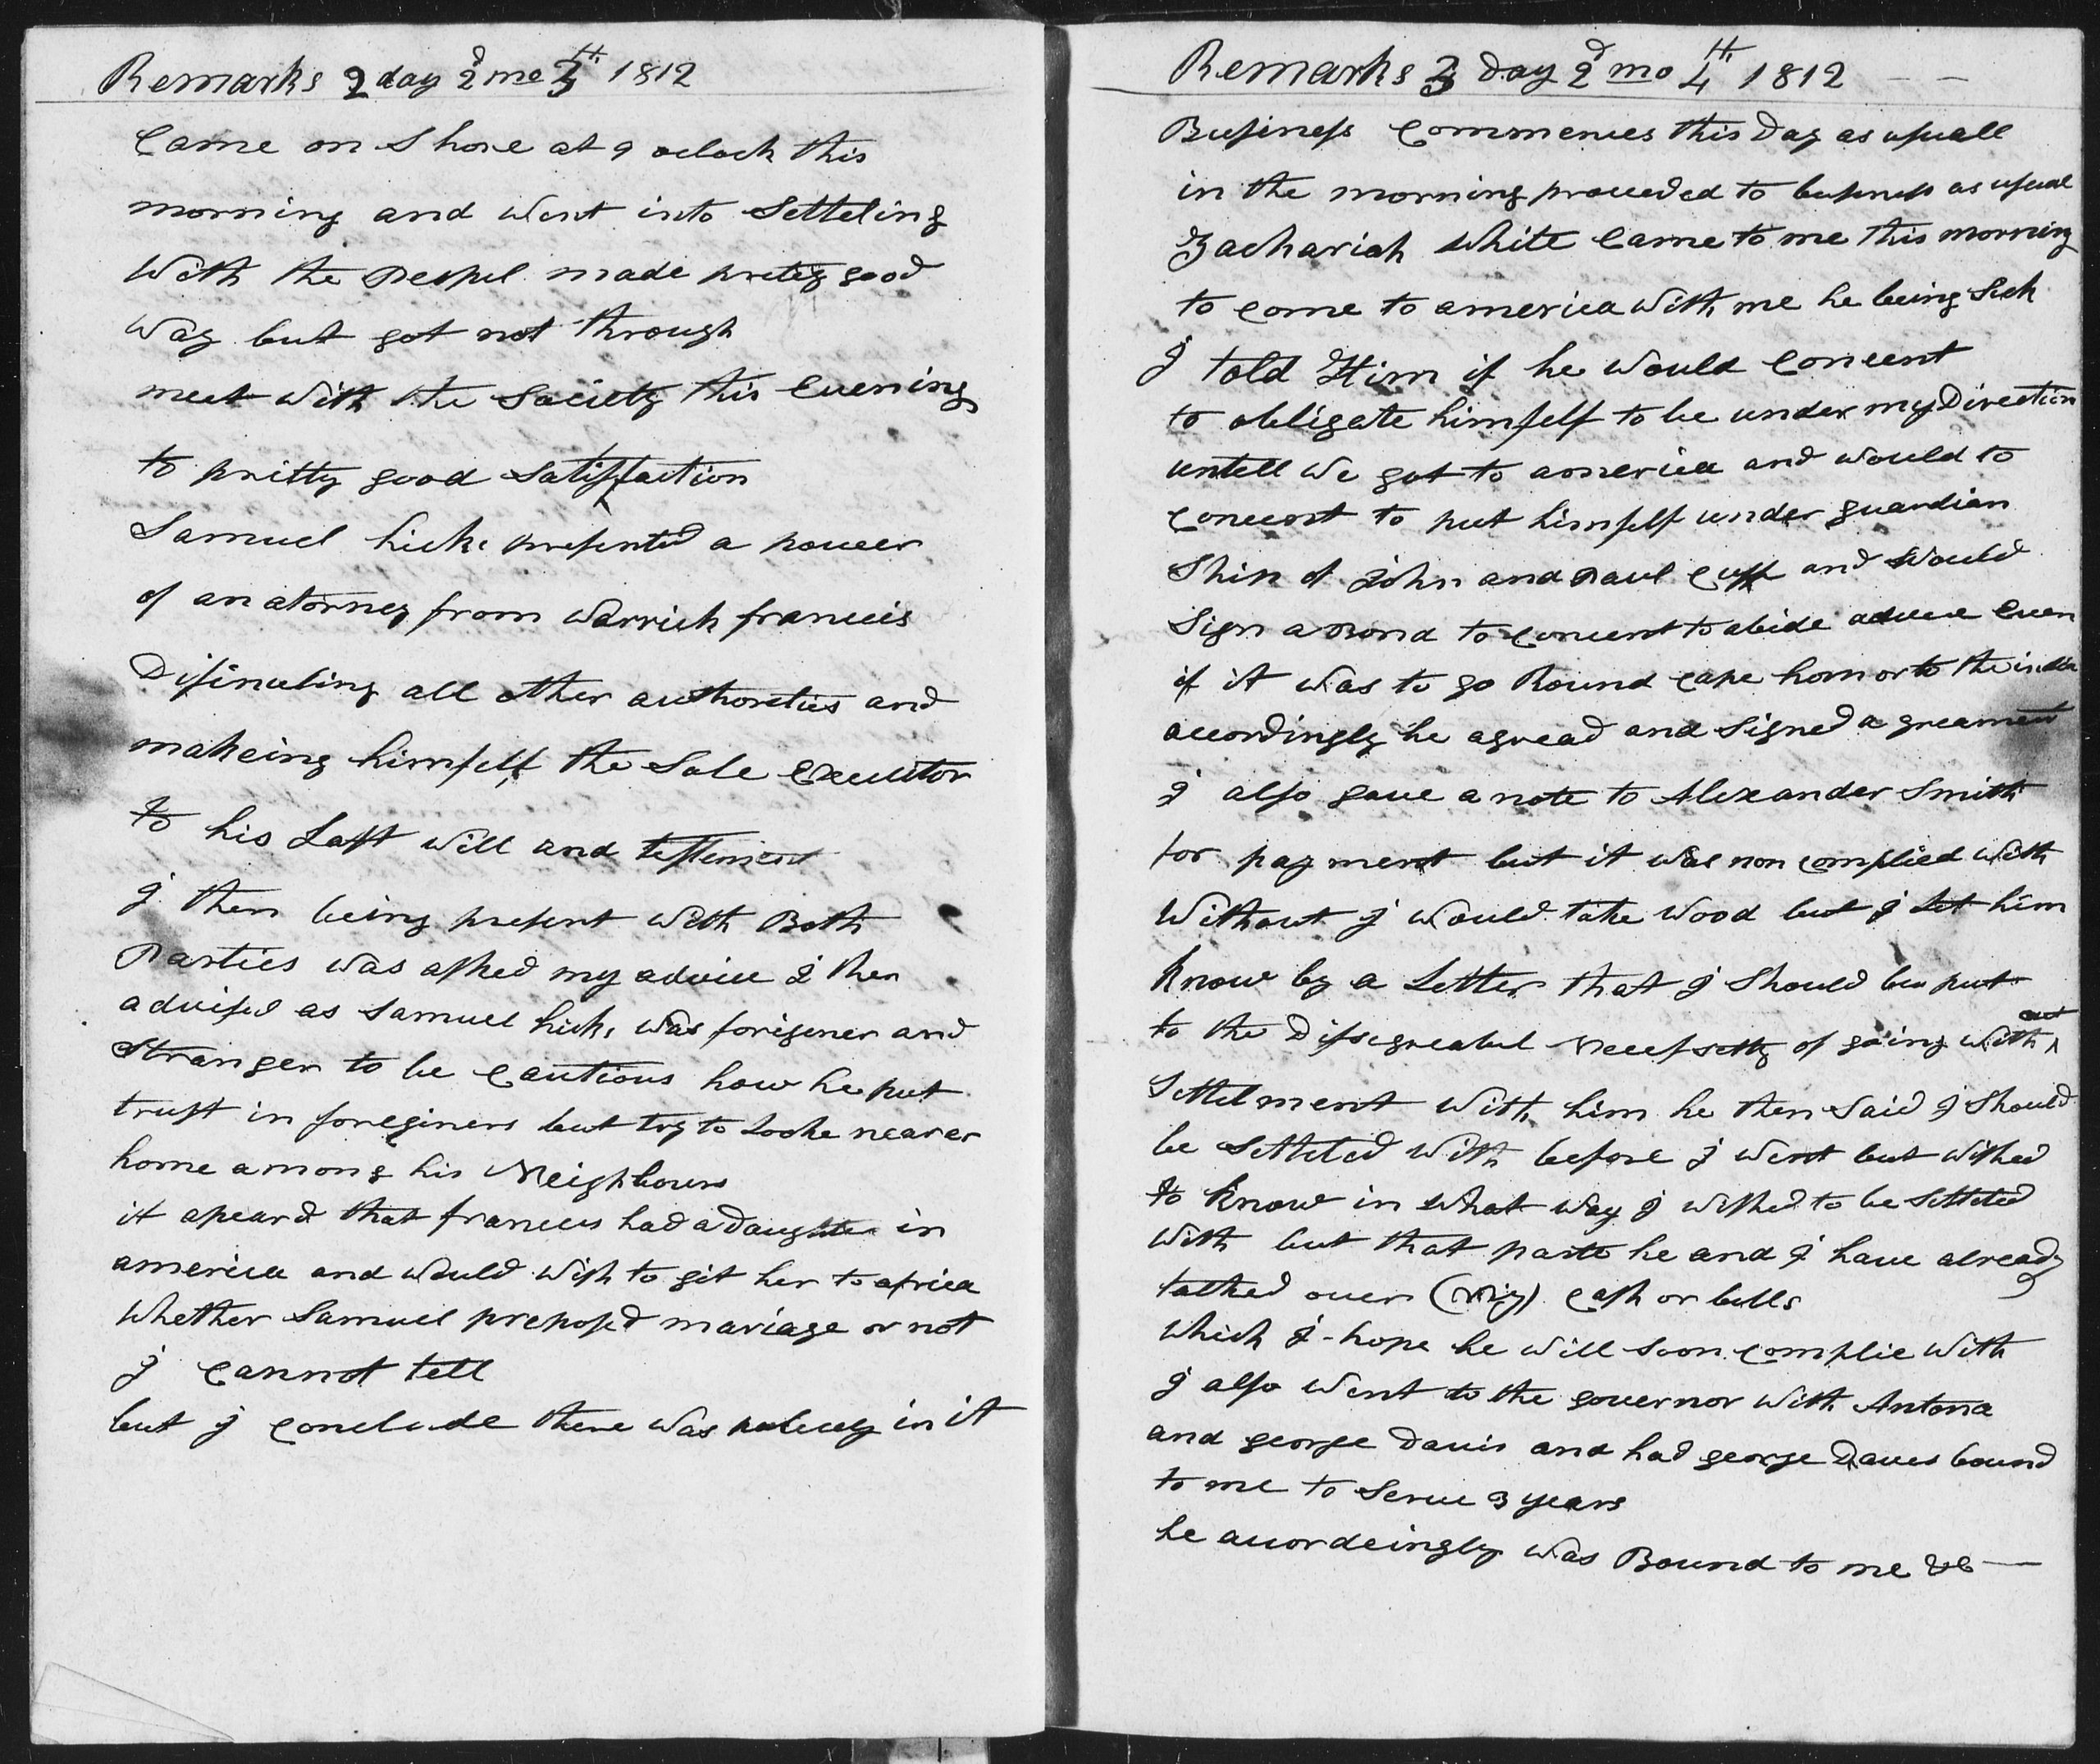 Remarks 2 day 2d mo 3th 1812
Came on Shore at 9 oclock this
morning and went into Setteling
With the Peopel made pretey good
way but got not through
meet with the Society this evening
to pritty good Satisfaction
Samuel hicks presented a power
of an atorney from Warrick francis
Disinuling all other authoreties and
makeing himself the Sole Executor
to his Last will and testement
I then being present with Both
Parties was asked my advice I then
advised as Samuel hicks was foriguner and
Stranger to be Cautious how he put
trust in foreginers but try to Looke nearer
home among his Neighbours
it apeard that francies had a Daughter in
america and would wish to git her to africa
Whether Samuel preposed mariage or not
I Cannot tell
but I Conclude there was policey in it
Remarks 3 Day 2d mo 4th 1812 - -
Business Commences this Day as usuall
in the morning proceeded to business as usual
Zachariah White Came to me this morning
to come to america with me he being Sick
I told Him if he would Concent
to obligate himself to be under my Direction
untell we got to america and would to
Concent to put himself under guardian
Ship of John and Paul Cuffe and would
Sign a Bond to Concent to abide advice even
if it was to go Round Cape horn or to the india
accordingly he agread and Signed agreament
I also gave a note to Alexander Smith
for payment but it was non complied with
Without I would take Wood but I Let him
know by a Letter that I Should be put
to the Dissegreabel Necessetty of going with out
Settelment With him he then Said I Should
be Setteled With before I Went but wished
to know in what way I wished to be Setteled
With but that parte he and I have already
talked over (viz) Cash or bills
Which I hope he will soon Complie with
I also went to the governor with Antona
and george Davis and had george Daves bound
to me to Serve 3 years
he accordeingly was Bound to me &c —